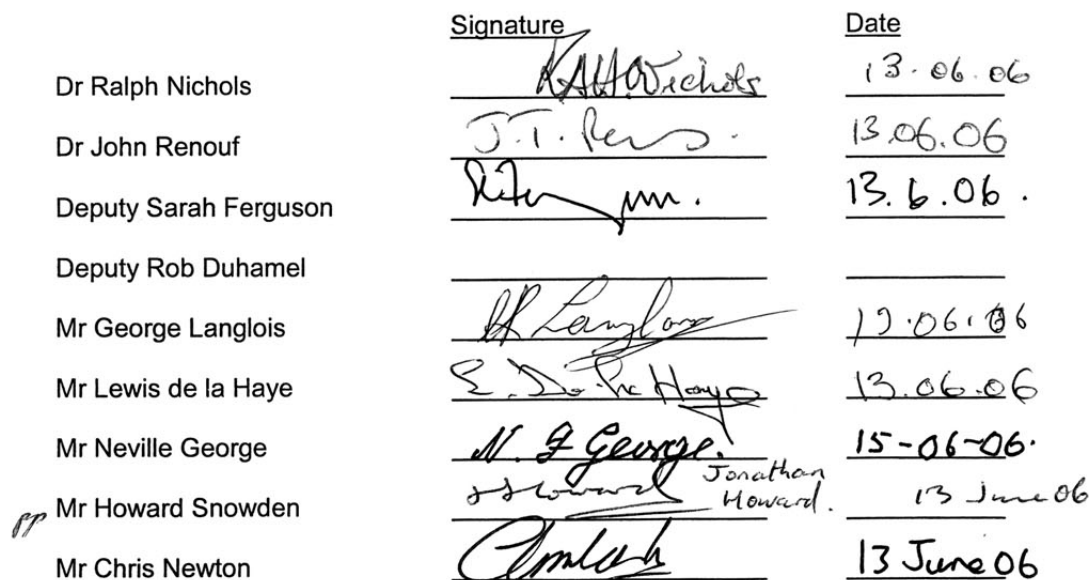 Signature Date
Dr Ralph Nichols R.A.H. Nichols 13.06.06
Dr John Renouf J.T. 13.06.06
Deputy Sarah Ferguson 13.6.06.
Deputy Rob Duhamel
Mr George Langlois Langlois 19.06.06
Mr Lewis de la Haye De La Haye 13.06.06
Mr Neville George N. F George. 15-06-06.
pp Mr Howard Snowden Jonathan Howard. 13 June 06
Mr Chris Newton 13 June 06